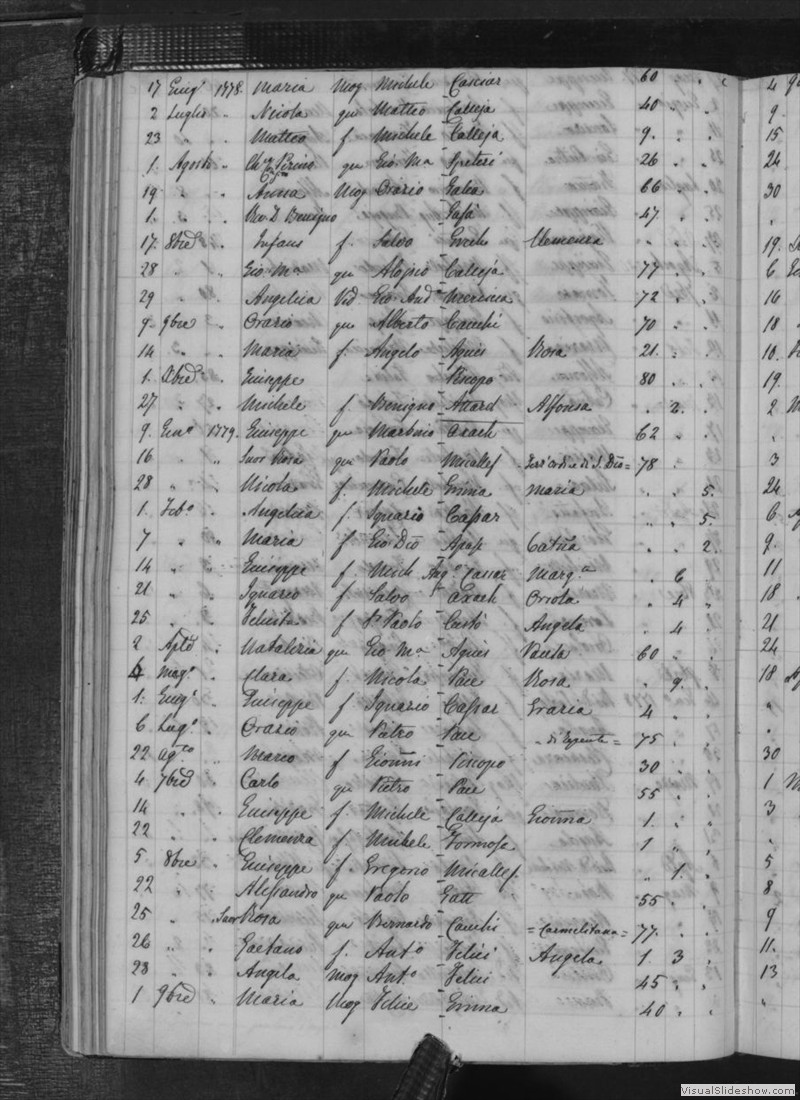 17 Giug° 1778. Maria Mog Michele Casciar 60
2 Luglio " Nicola qm Matteo Calleja 40
23 " Matteo f. Michele Calleja 9
1. Agosto " Pirino qm Gio Mª Speteri 26
19 " Anna Mog Orazio Galea 66
1. " Rev. D. Benigno Safà 47
17. 8bre " Infans f. Salvo Clemenza
28 " Gio Mª qm Aloisio Calleja 77
29 " Angelica Vid. Gio And. 72
9 9bre " Orazio qm Alberto Cauchi 70
14 " Maria f. Angelo Agius Rosa 21.
1. Xbre Giuseppe Piscopo 80
27 " Michele f. Benigno Attard Alfonsa . 2.
9. Gen° 1779. Giuseppe qm Martino 62
16 " Suor Rosa qm Paolo Micallef = Terz'ordine di S. Dño = 78
28 " Nicola f. Michele Emma Maria . . 5.
1. Feb° Angelica f. Ignazio Cassar . . 5.
7 " Maria f Gio Dño Apap Cat'na . . 2.
14 " Giuseppe f. Mich Ang° Cassar Marg.ª . 6
21 " Ignazio f. Salvo Oriola . 4
25 " f Pº Paolo Angela . 4
2 Aple Natalizia qm Gio Mª Agius Paula 60
Mag° " Clara f. Nicola Pace Rosa . 9.
1. Giug° Giuseppe f Ignazio Cassar Grazia 4
6 Lug° Orazio qm Pietro Pace 75
22 Ag.to Marco f Gioñni Piscopo 30
4 7bre Carlo qm Pietro Pace 55
14 " Giuseppe f Michele Calleja Gioñna 1.
22 " Clemenza f Michele Formosa 1
5 8bre Giuseppe f. Gregorio Micallef . 1.
22 " Alessandro qm Paolo Gatt 55
25 . Suor Rosa qm Bernardo Cauchi = Carmelitana = 77
26 " Gaetano f. Ant° Felici Angela 1. 3
28 " Angela Mog Ant° Felici 45
1 9bre " Maria Mog Felice Emma 40
4
9
15
24
30
19.
6
16
18
10.
19.
2
3
24
6
9.
11
18
21
24
18
30
1
3
5
8
9
11.
13
VisualSlideshow.com